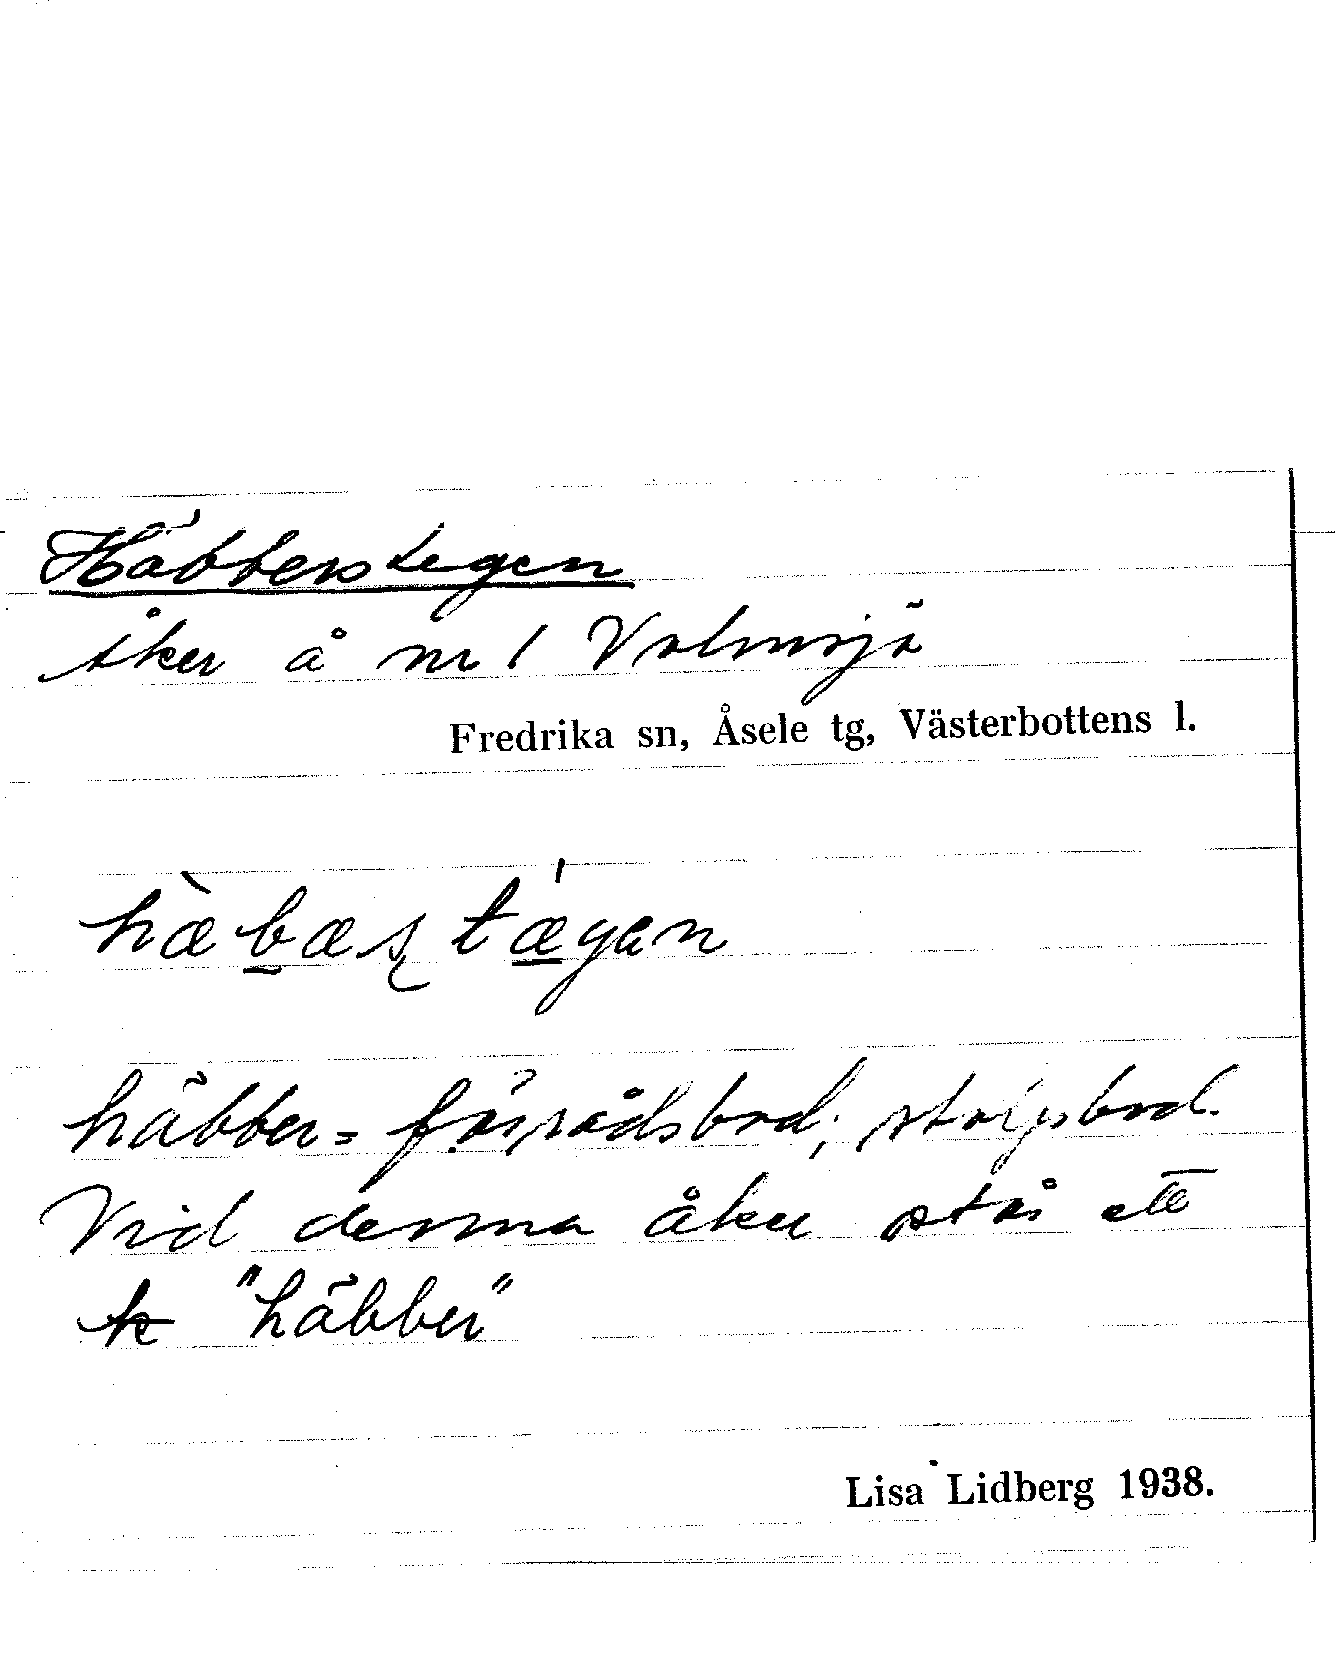 Häbberstegen
åker å nr 1 Volmsjö
Fredrika sn, Åsele tg, Västerbottens l.
hæ̀bæʂtǽgen
häbber = förrådsbod; stolpbod.
Vid denna åker står ett
"häbber"
Lisa Lidberg 1938.